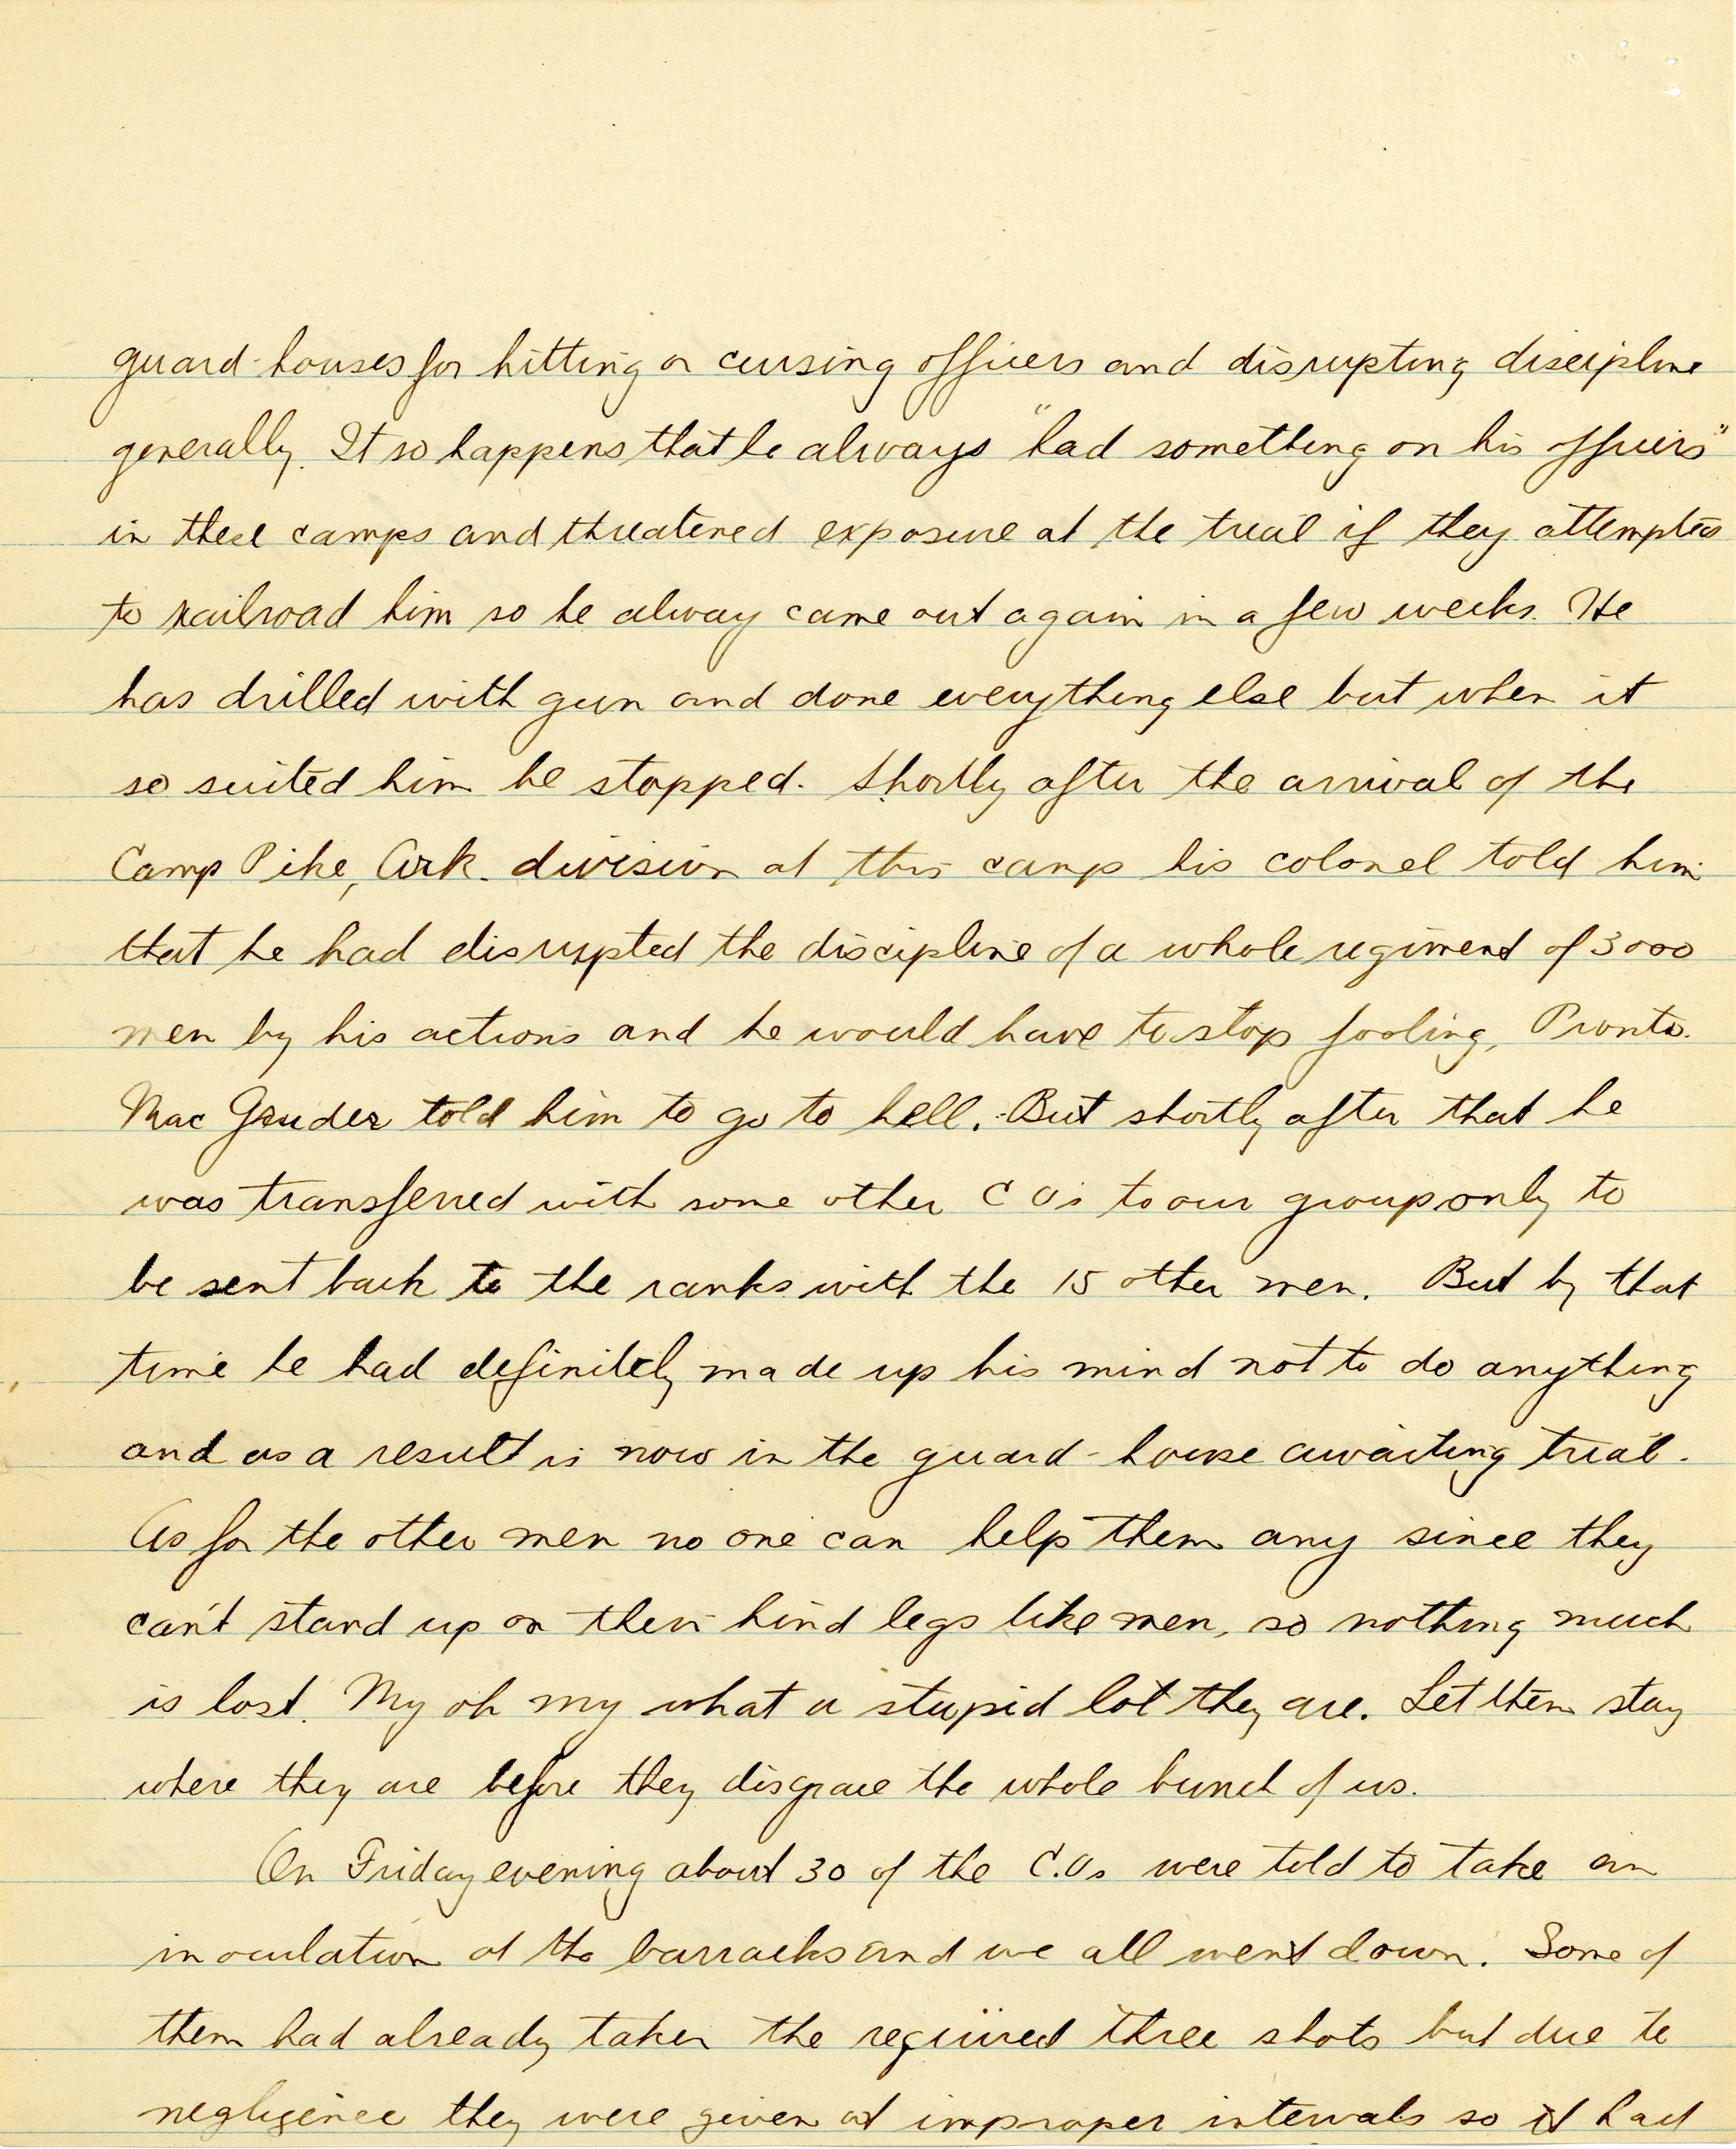 guard-houses for hitting or cursing officers and disrupting discipline
generally. It so happens that he always "had something on his officers"
in these camps and threatened exposure at the trial if they attempted
to railroad him so he alway came out again in a few weeks. He
has drilled with gun and done everything else but when it
so suited him he stopped. Shortly after the arrival of the
Camp Pike, Ark. division at this camp his colonel told him
that he had disrupted the discipline of a whole regiment of 3000
men by his actions and he would have to stop fooling, Pronto.
Mac Gruder told him to go to hell. But shortly after that he
was transferred with some other C Os to our group only to
be sent back to the ranks with the 15 other men. But by that
time he had definitely made up his mind not to do anything
and as a result is now in the guard-house awaiting trial.
As for the other men no one can help them any since they
can't stand up on their hind legs like men, so nothing much
is lost. My oh my what a stupid lot they are. Let them stay
where they are before they disgrace the whole bunch of us.
On Friday evening about 30 of the C.Os were told to take an
inoculation at the barracks and we all went down. Some of
them had already taken the required three shots but due to
negligence they were given at improper intervals so it had